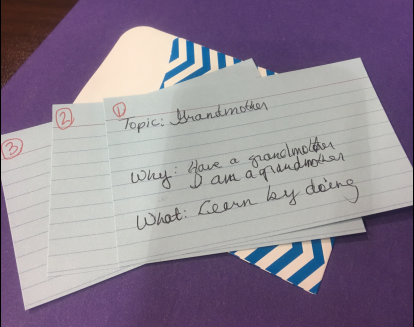 3
2
1
Topic: Grandmother
Why: Have a grandmother
I am a grandmother
What: Learn by doing